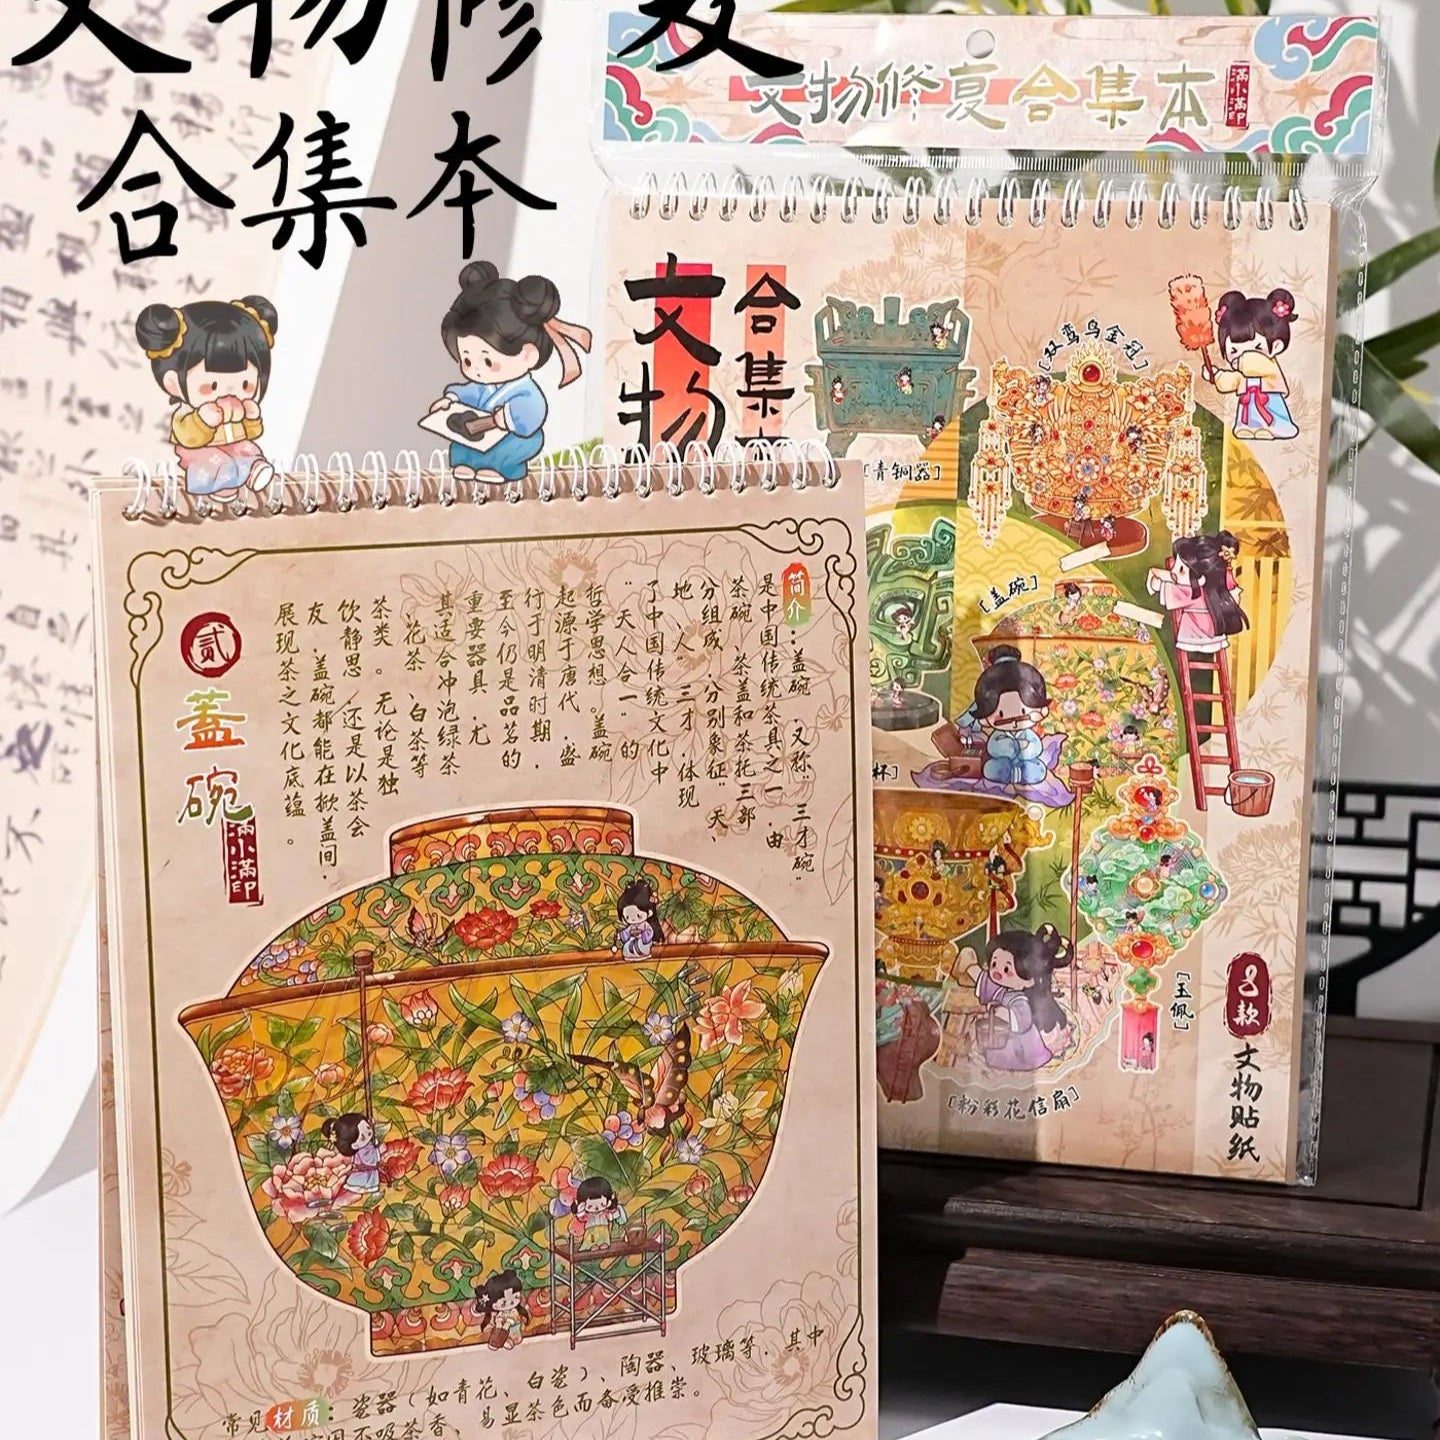 文物修复
合集本
文物修复合集本
滿小滿印
文物
合集本
[青铜器]
[双鸾鸟金冠]
[盖碗]
杯]
[玉佩]
[粉彩花信扇]
8款
文物贴纸
贰
蓋碗
滿小滿印
简介:盖碗,又称"三才碗"
是中国传统茶具之一,由
茶碗、茶盖和茶托三部
分组成,分别象征"天、
地、人"三才,体现
了中国传统文化中
"天人合一"的
哲学思想。盖碗
起源于唐代,盛
行于明清时期,
至今仍是品茗的
重要器具,尤
其适合冲泡绿茶
、花茶、白茶等
茶类。无论是独
饮静思,还是以茶会
友,盖碗都能在掀盖间,
展现茶之文化底蕴。
常见材质:瓷器(如青花、白瓷)、陶器、玻璃等,其中
不吸茶香、易显茶色而备受推崇。